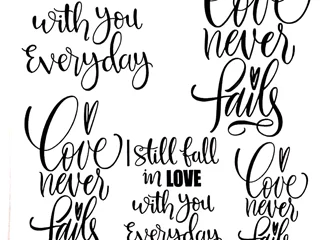 with you
Everyday
Love
never
fails
Love
never
fails
I still fall
in LOVE
with you
Everyday
Love
never
fails